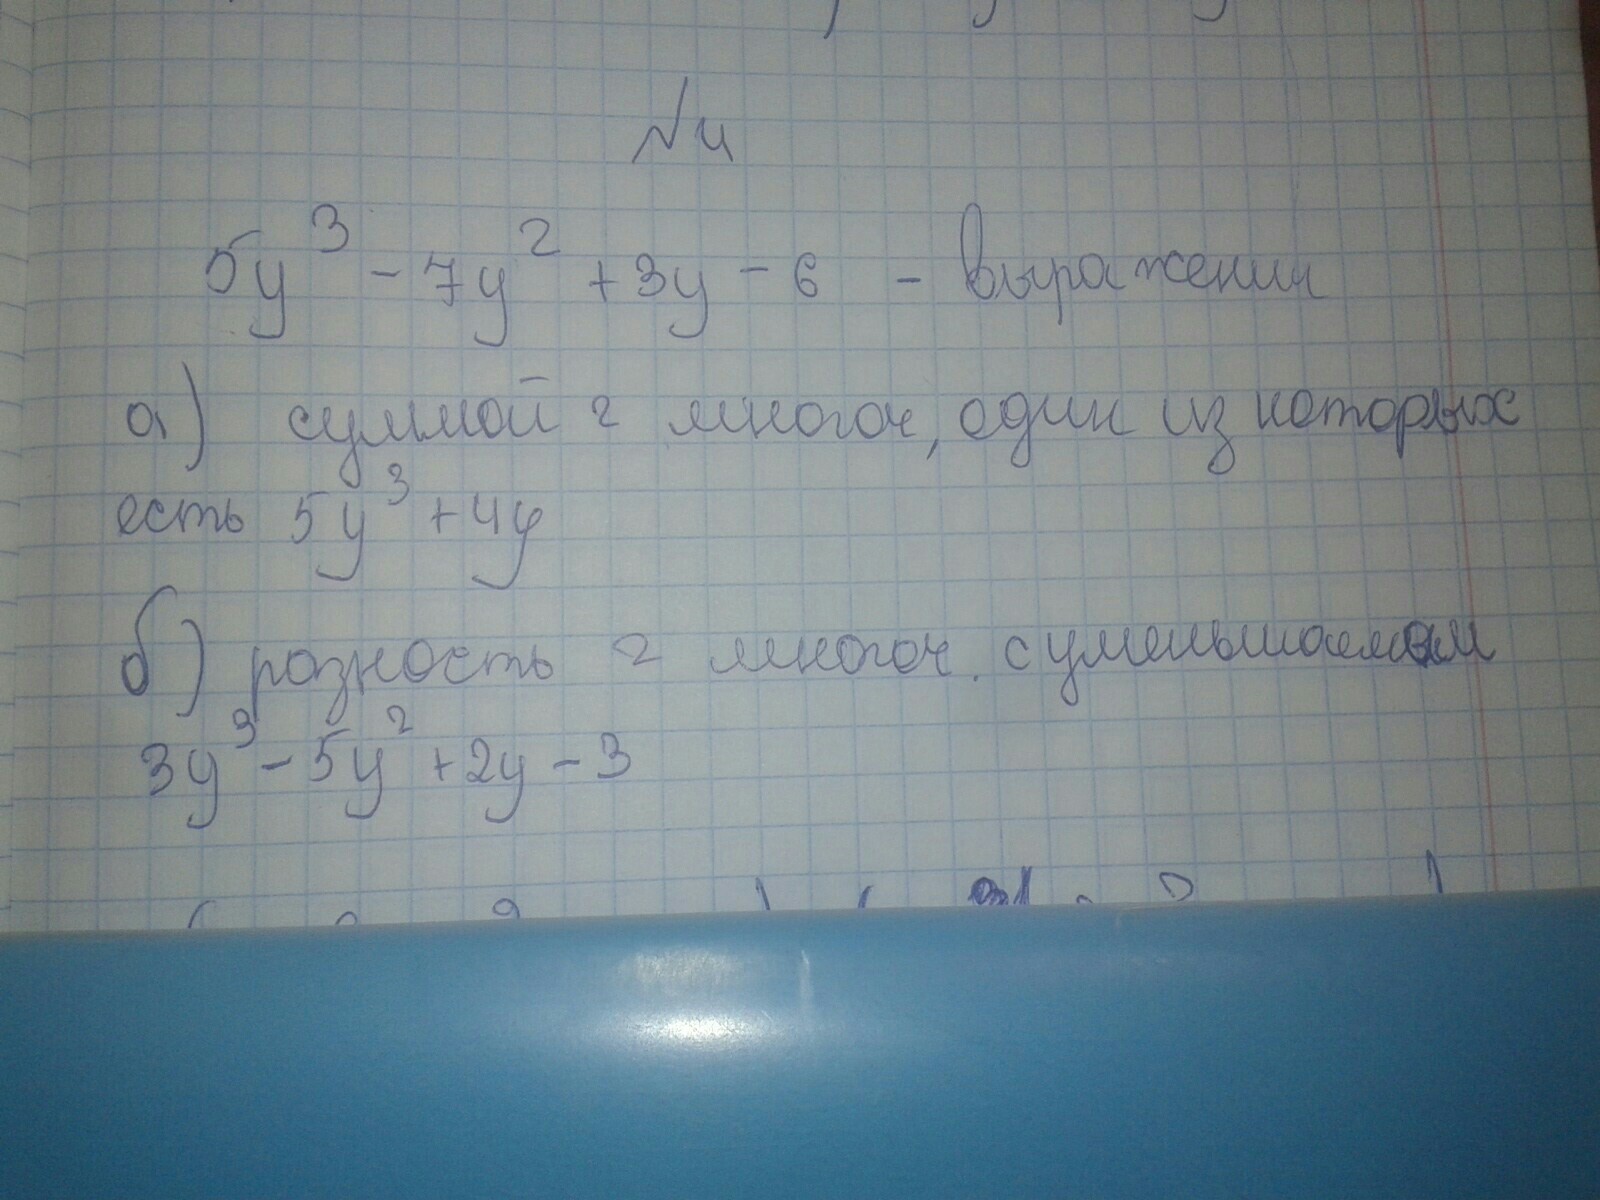 №4
5y³ - 7y² + 3y - 6 - выражении
а) суммой 2 многоч, один из которых
есть 5y³ + 4y
б) разность 2 многоч. с уменьшаемым
3y³ - 5y² + 2y - 3